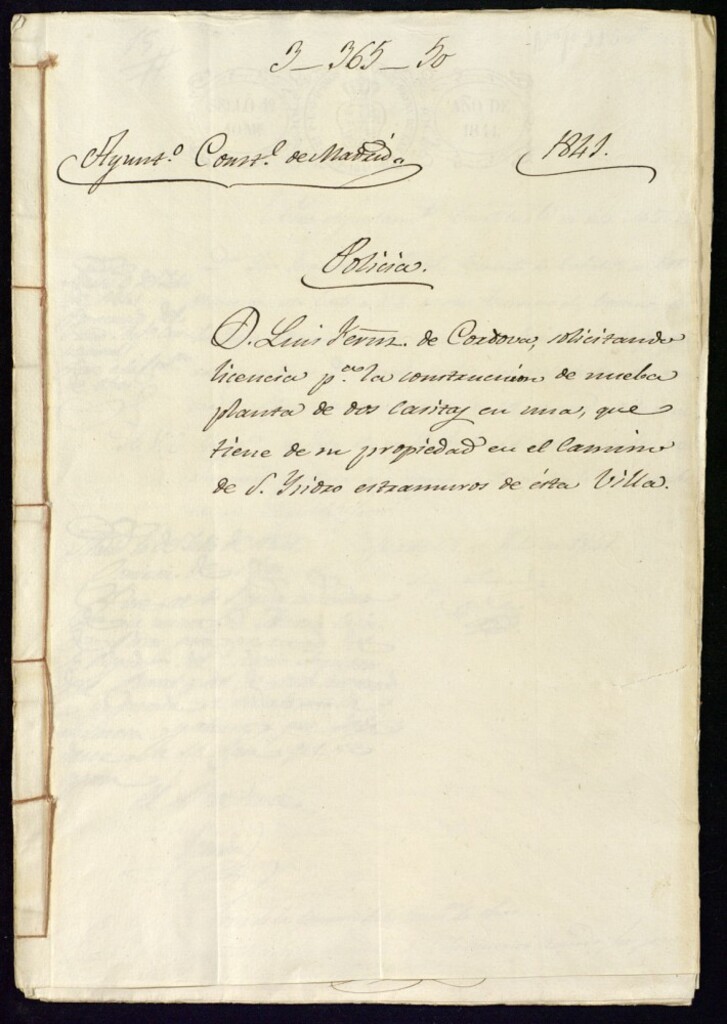 3-365-50
Ayunt.º Const.l de Madrid. 1841.
Policia.
D. Luis Fernz. de Cordova, solicitando
licencia p.ª la construccion de nueba
planta de dos casitas en una, que
tiene de su propiedad en el Camino
de S. Ysidro estramuros de ésta Villa.